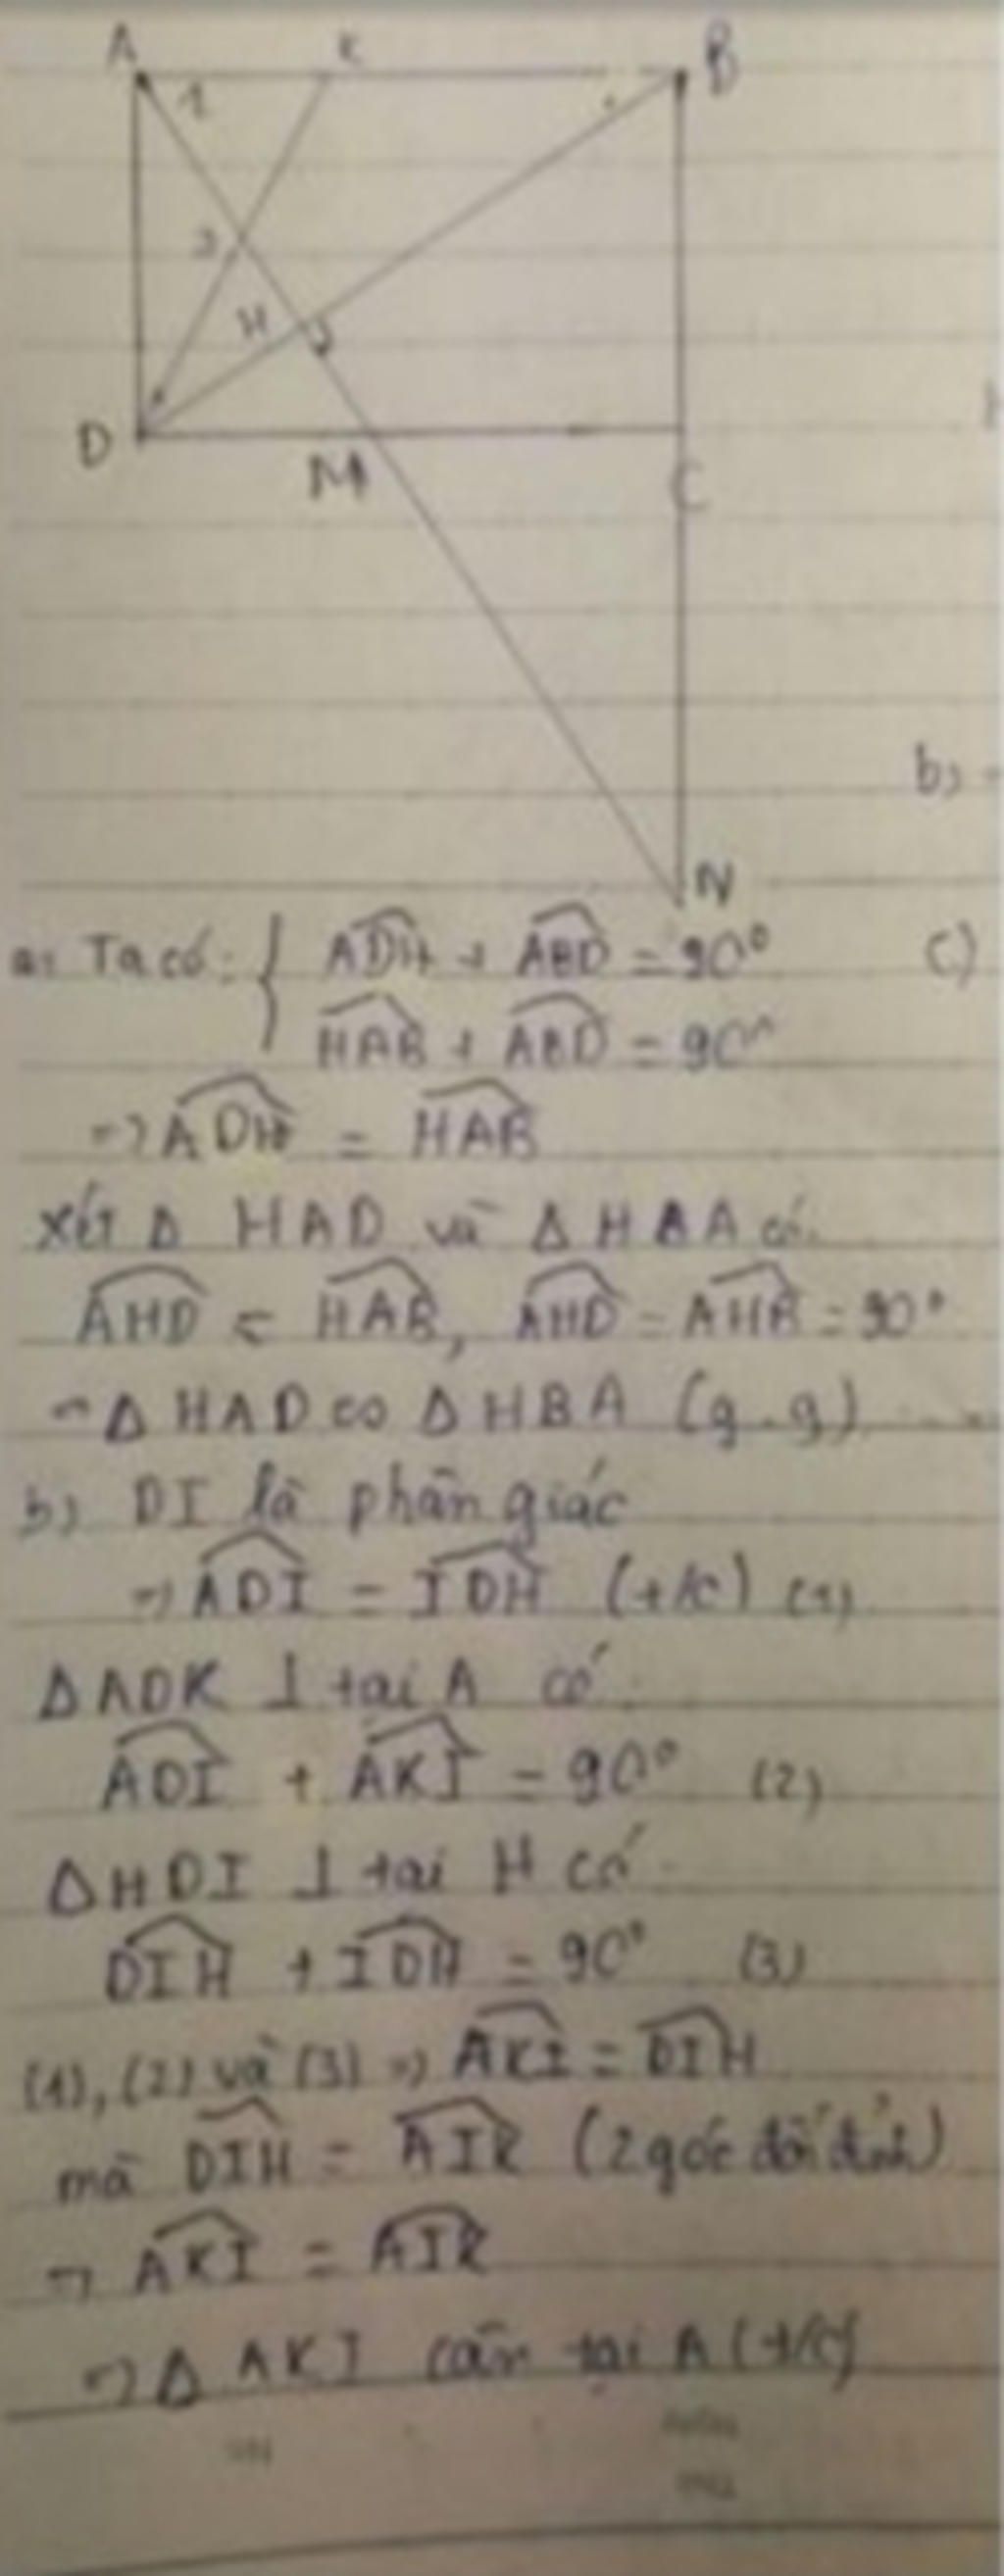 A K B
1
2
H
D M C
N
b)
a, Ta có: { ADH + ABD = 90°
C)
HAB + ABD = 90°
=> ADH = HAB
Xét Δ HAD và Δ HBA có:
AHD = HAB, AHD = AHB = 90°
=> Δ HAD ∽ Δ HBA (g.g)
b) DI là phân giác
=> ADI = IDH (t/c) (1)
ΔADK ⊥ tại A có:
ADI + AKI = 90° (2)
ΔHDI ⊥ tại H có:
DIH + IDH = 90° (3)
(1), (2) và (3) => AKI = DIH
mà DIH = AIK (2 góc đối đỉnh)
=> AKI = AIK
=> Δ AKI cân tại A (t/c)